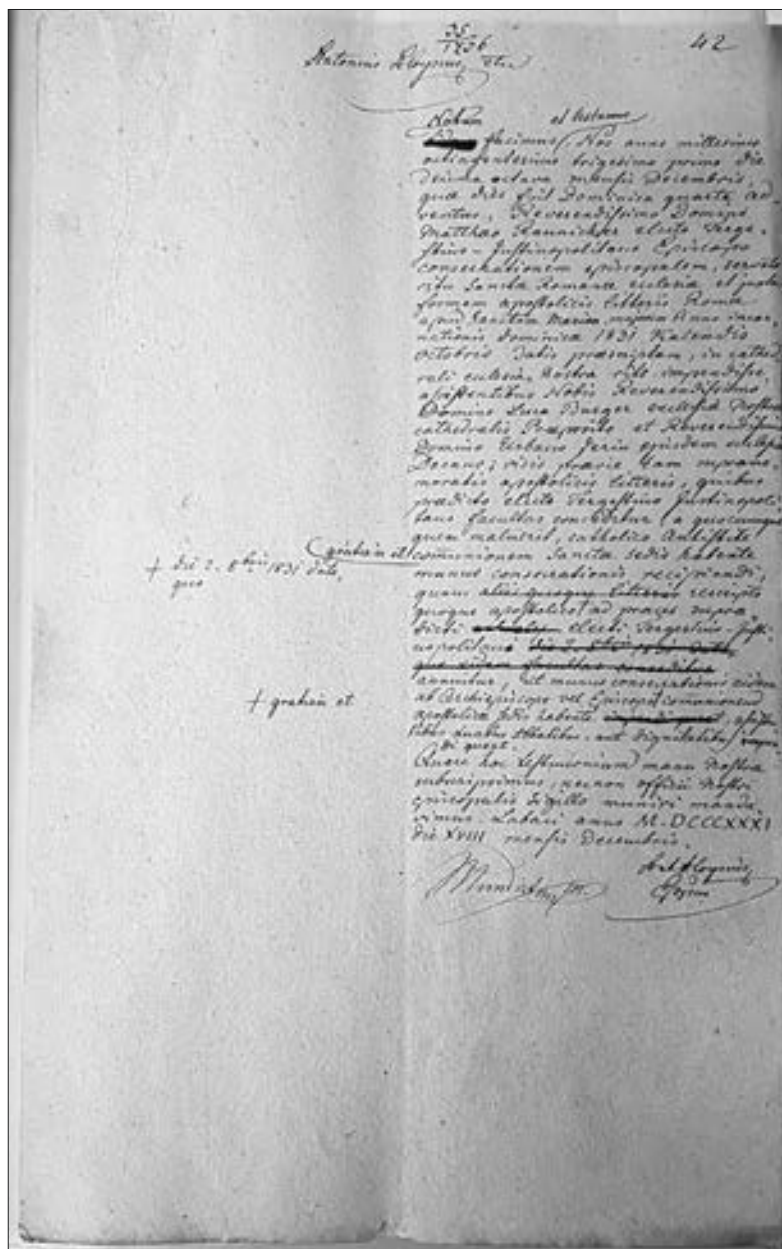 35
1836
42
Antonius Aloysius
Notum et testamur
facimus, Nos anno millesimo
octingentesimo trigesimo primo die
decima octava mensis Decembris,
quae dies fuit Dominica quarta ad
ventus, Reverendissimo Domino
Matthaeo Raunicher electo Terge-
stino-Justinopolitano Episcopo
consecrationem episcopalem, servato
ritu Sanctae Romanae ecclesiae et juxta
formam apostolicis litteris Romae
apud Sanctam Mariam majorem Anno incar
nationis dominicae 1831 Kalendis
Octobris datis praescriptam, in cathed
rali ecclesia Nostra rite impendisse
assistentibus Nobis Reverendissimo
Domino Luca Burger ecclesiae Nostrae
cathedralis Praeposito et Reverendissimo
Domino Urbano Jerin ejusdem ecclesiae
Decano; visis praevie tam supra me
moratis apostolicis litteris, quibus
praedicto electo Tergestino Justinopoli
tano facultas conceditur, a quocumque
quem maluerit, catholico Antistite
gratiam et communionem Sanctae sedis habente
+ die 2. 8bris 1831 dato,
quo
munus consecrationis recipiendi,
quam aliis quoque litteris rescripto
quoque apostolico + ad preces supra
dicti electi Tergestino-Justi
nopolitani die 2. 8bris 1831 dato
quo eidem facultas conceditur
annuitur, ut munus consecrationis eidem
+ gratiam et
ab Archiepiscopo vel Episcopo + communionem
apostolicae sedis habente assisten
tibus duabus Abbatibus aut dignitatibus
di queat.
Quare hoc testimonium manu Nostra
subscripsimus, necnon officii Nostri
episcopalis Sigillo muniri manda
vimus. Labaci anno M.DCCCXXXI
die XVIII mensis Decembris.
Ant Aloysius